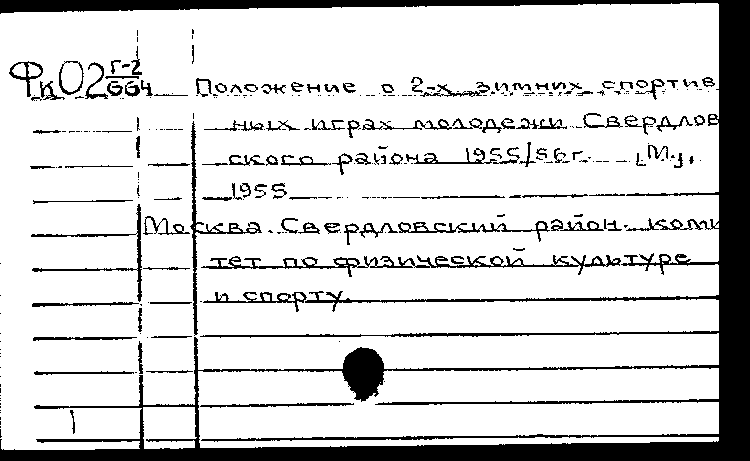 Фк02 Г-2/664 Положение о 2-х зимних спортив
ных играх молодежи Свердлов
ского района 1955/56г. [М],
1955
Москва. Свердловский район. коми
тет по физической культуре
и спорту.
1